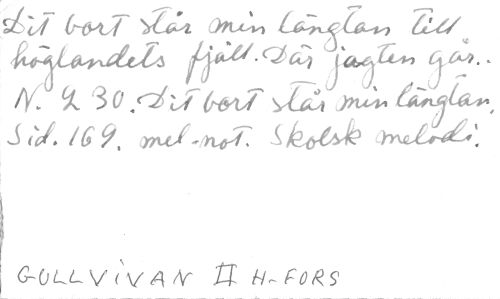 Dit bort står min längtan till
höglandets fjäll. Där jagten går..
N. 230. Dit bort står min längtan.
Sid. 169. mel-not. Skotsk melodi.
GULLVIVAN II H-FORS